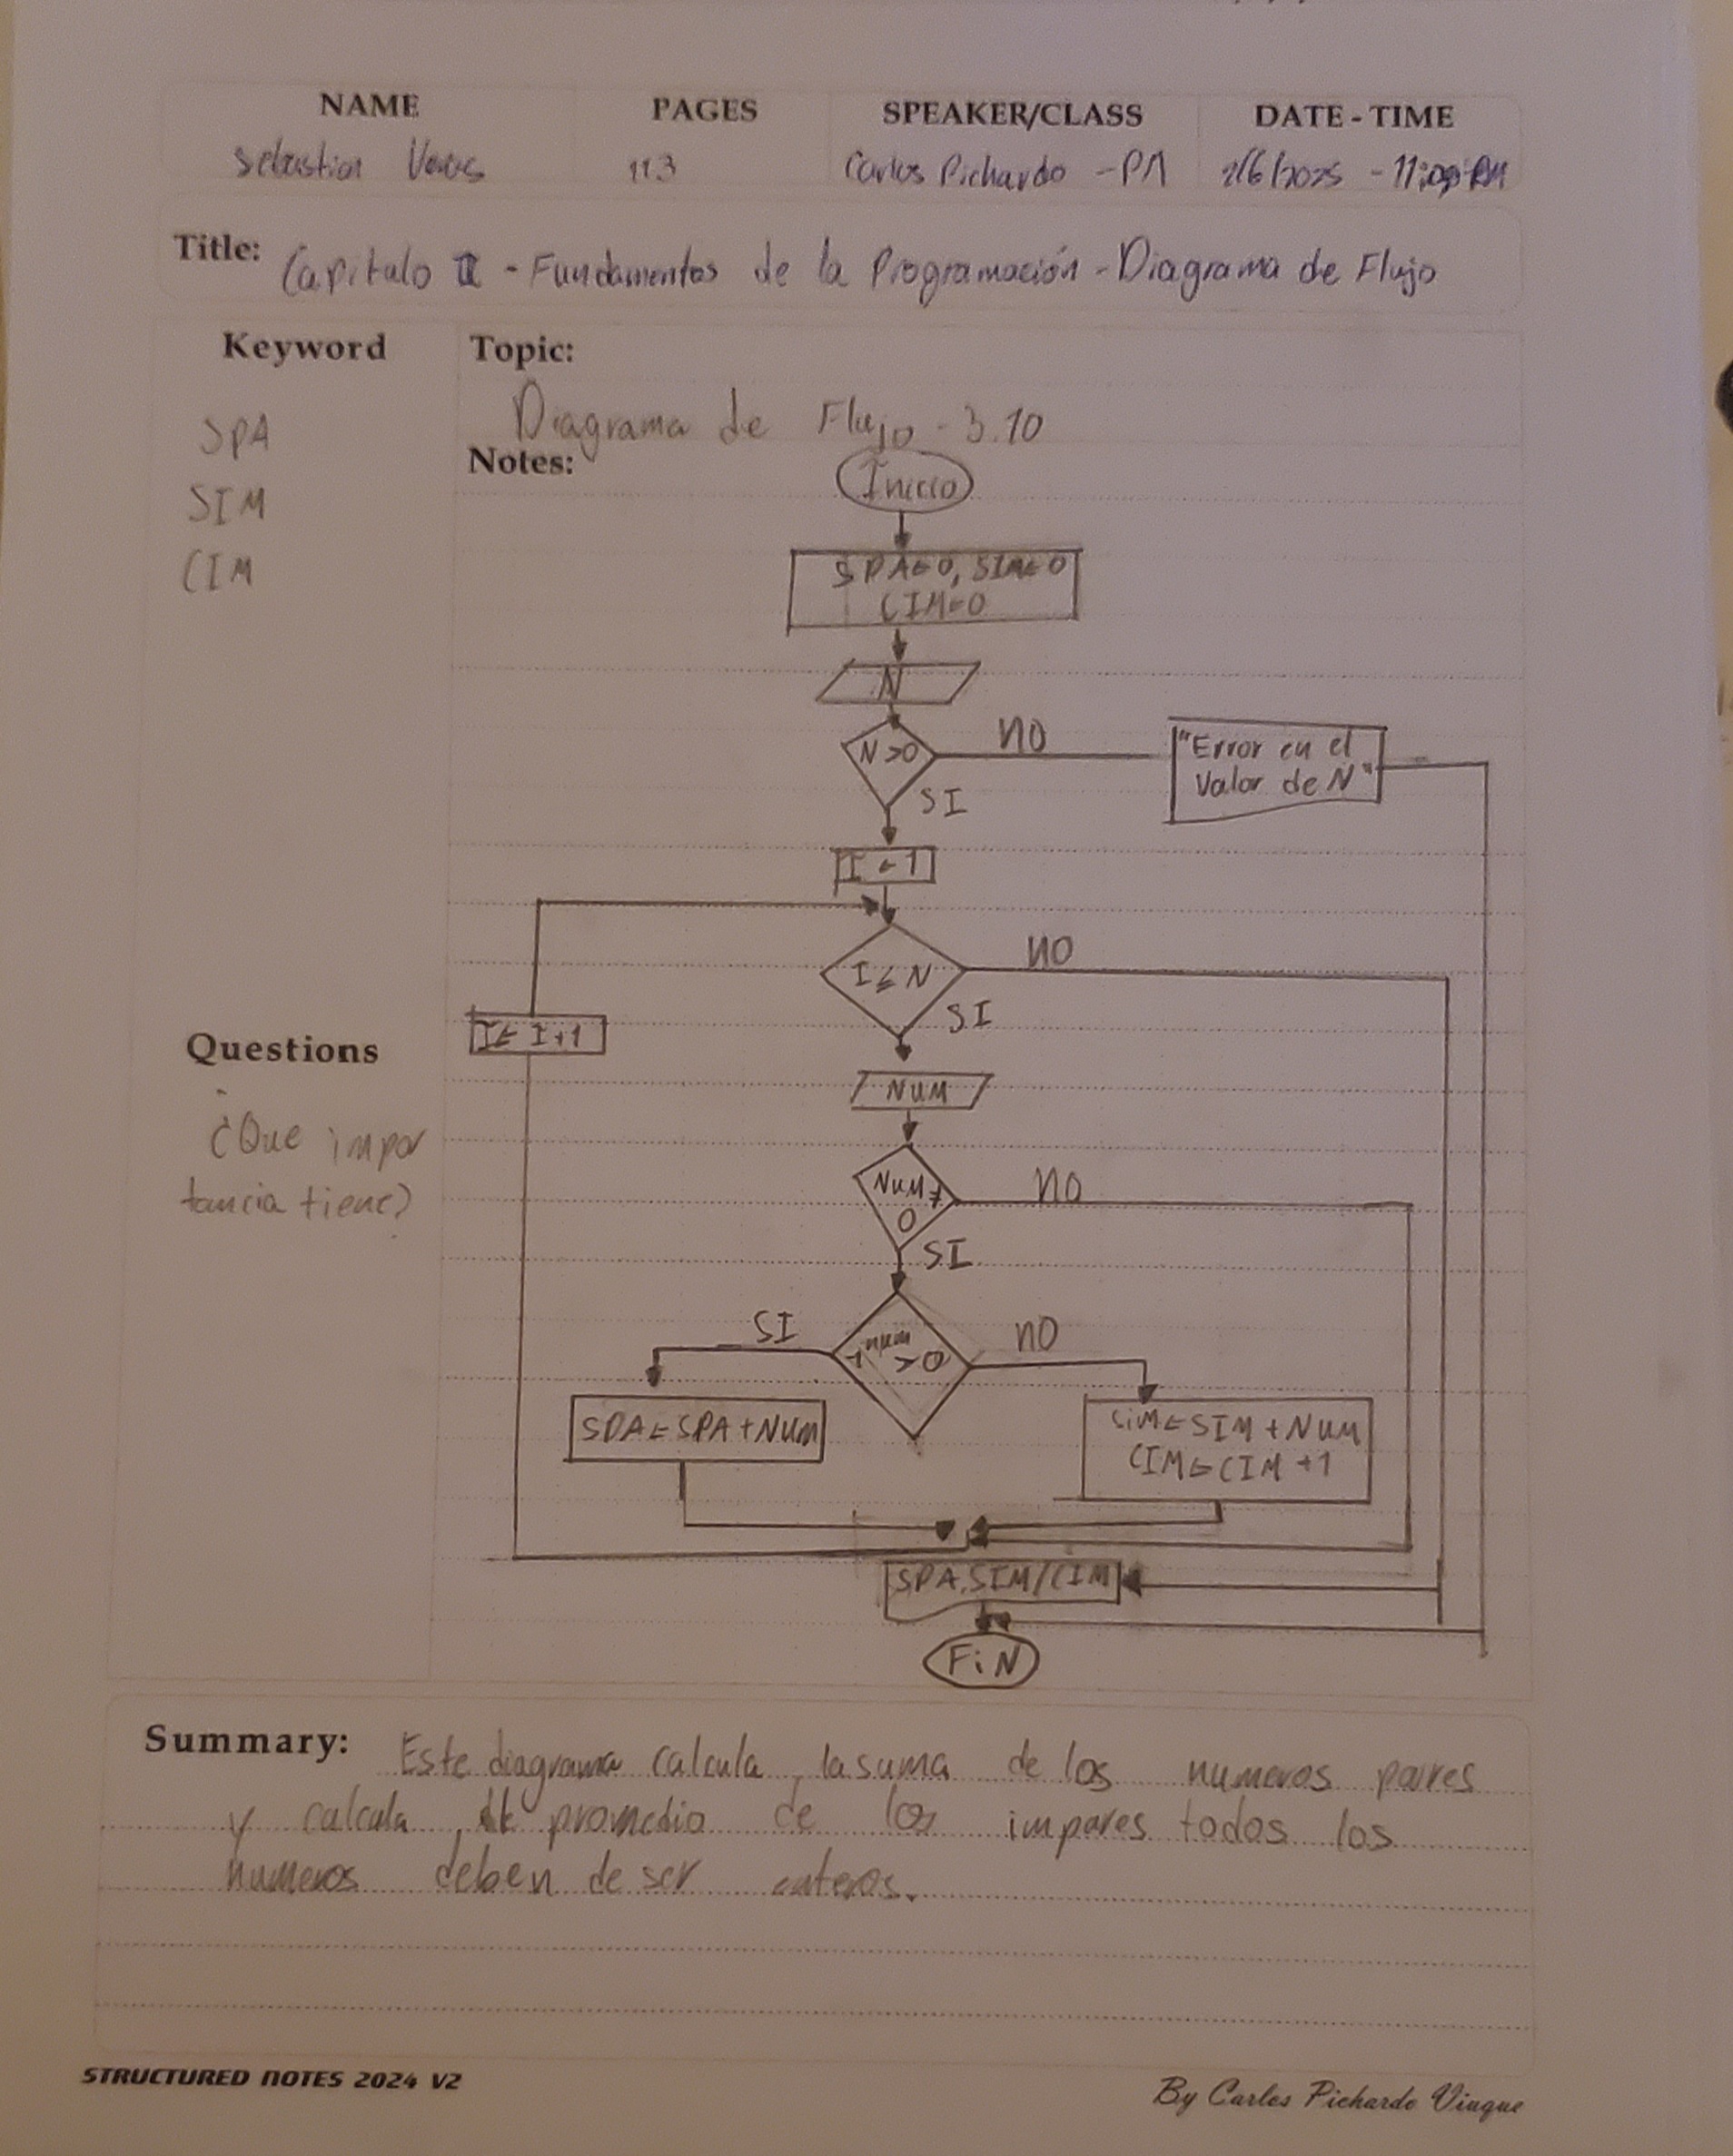 NAME PAGES SPEAKER/CLASS DATE - TIME
Sebastian 113 Carlos Pichardo - PA 2/6/2025 - 11: PM
Title: Capitulo II - Fundamentos de la Programación - Diagrama de Flujo
Keyword Topic:
Diagrama de Flujo - 3.10
SPA
Notes:
Inicio
SIM
SPA←0, SIM←0
CIM
CIM←0
N
N>0 NO "Error en el
Valor de N"
SI
I ← 1
I ≤ N NO
SI
I← I+1
Questions
NUM
¿Que impor
tancia tiene?
NUM≠ NO
0
SI
SI num NO
-1 >0
SPA←SPA+NUM
SIM←SIM+NUM
CIM←CIM+1
SPA,SIM/CIM
FiN
Summary: Este diagrama calcula la suma de los numeros pares
y calcula promedio de los impares todos los
numeros deben de ser enteros.
STRUCTURED NOTES 2024 V2
By Carlos Pichardo Viuque